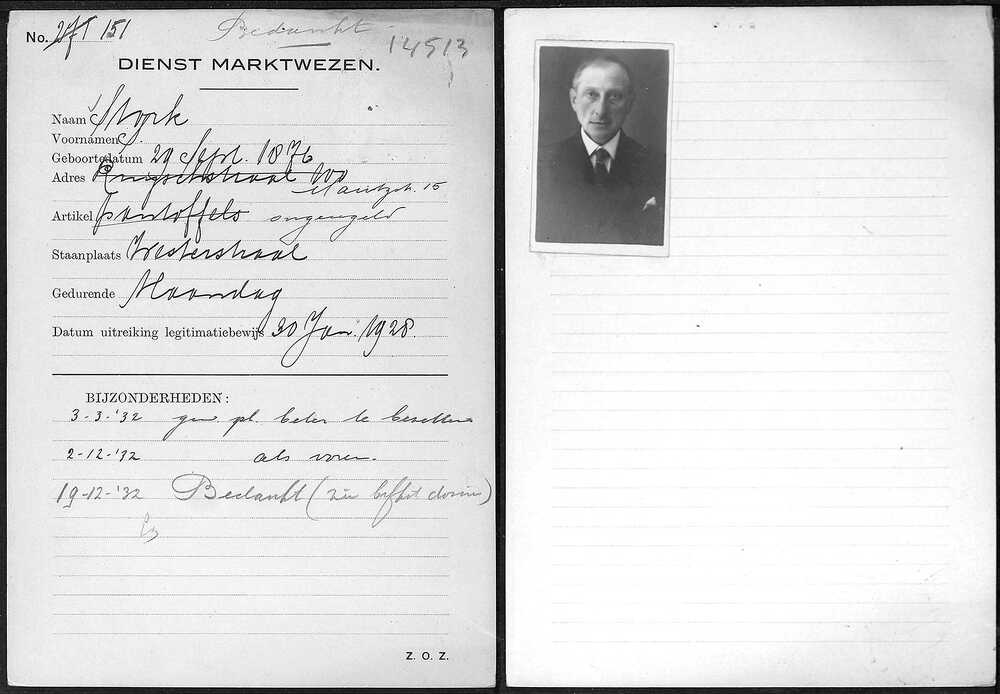 No. 151
Bedankt
14513
DIENST MARKTWEZEN.
Naam Stork
Voornamen S.
Geboortedatum 29 Sept. 1876
Adres
Mauritzstr. 15
Artikel pantoffels ongeregeld
Staanplaats Westerstraat
Gedurende Maandag
Datum uitreiking legitimatiebewijs 30 Jan. 1928.
BIJZONDERHEDEN:
3-3-'32 gew. pl. beter te bezetten
2-12-'32 als voren.
19-12-'32 Bedankt (zie
Z. O. Z.